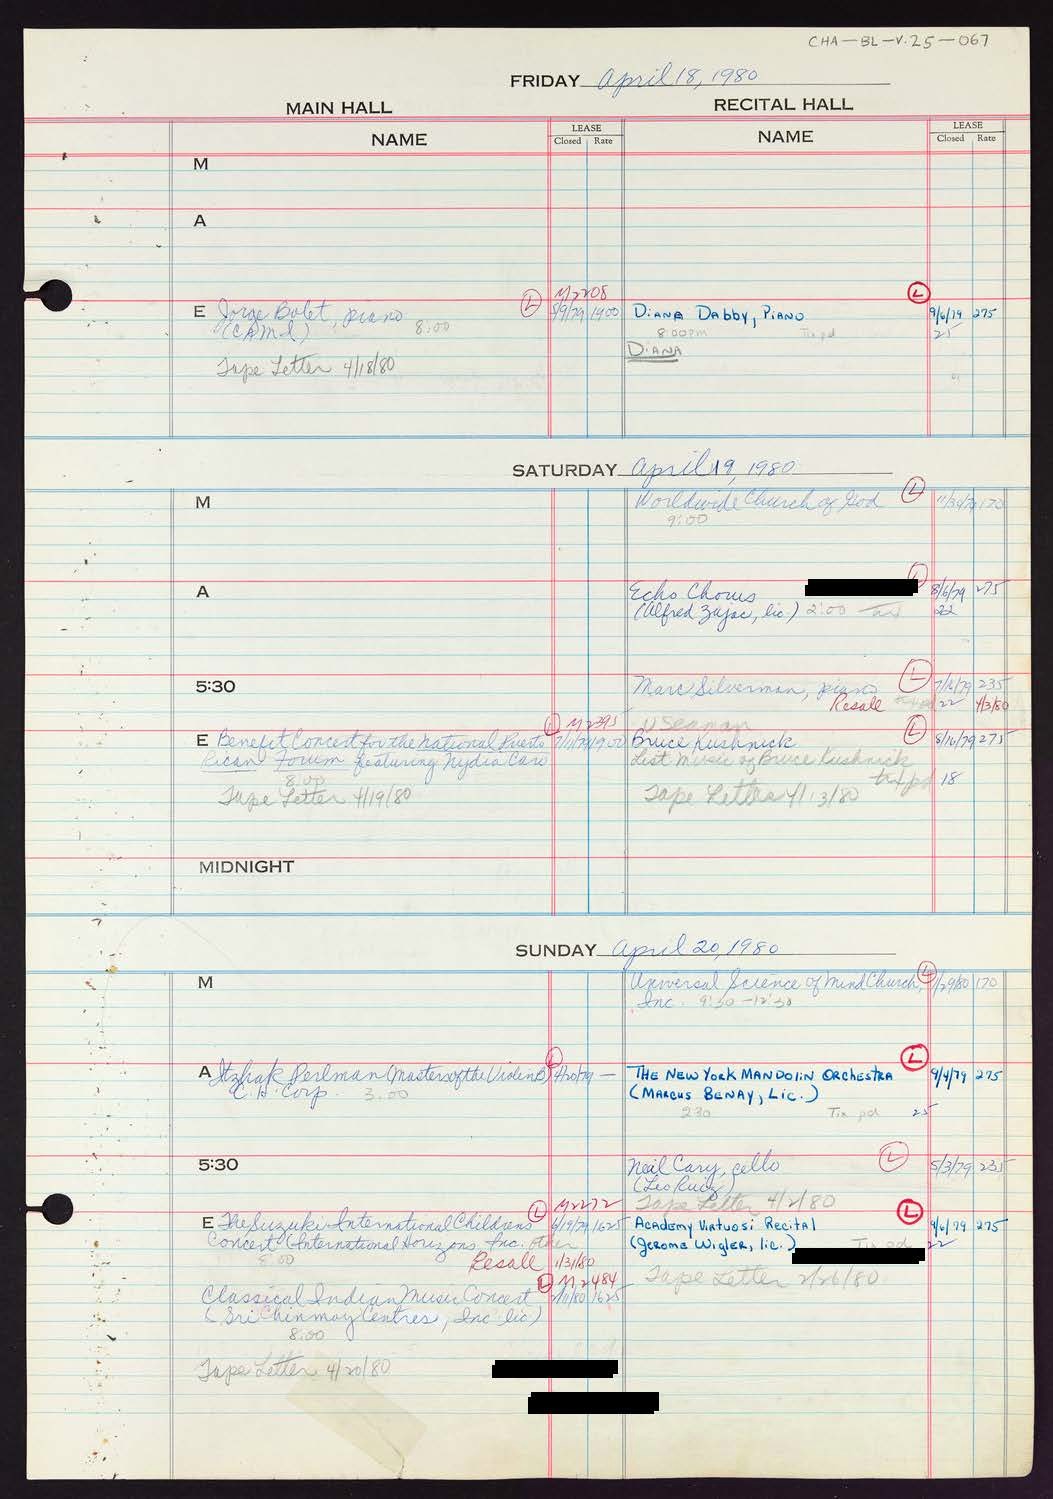 CHA-BL-V.25-067
FRIDAY April 18, 1980
MAIN HALL
RECITAL HALL
NAME
LEASE
Closed Rate
NAME
LEASE
Closed Rate
M
A
M2208
E Jorge Bolet, piano L 5/9/79 1900
(CAMI) 8:00
Tape Letter 4/18/80
L
Diana Dabby, Piano 9/6/79 275
8:00pm Tix pd 25
Diana
SATURDAY April 19, 1980
M
Worldwide Church of God L 170
9:00
A
Echo Chorus L 8/6/79 275
(Alfred Zajac, lic.) 2:00 22
5:30
Marc Silverman, piano L 7/16/79 235
Resale 22 4/3/80
L M2395
E Benefit Concert for the National Puerto 1900
Rican Forum featuring Nydia Caro
8:00
Tape Letter 4/19/80
Bruce Kushnick L 8/16/79 275
List Music of Bruce Kushnick
tix pd 18
Tape Letter 4/13/80
MIDNIGHT
SUNDAY April 20, 1980
M
Universal Science of Mind Church, L 1/29/80 170
Inc. 9:30-12:30
A Itzhak Perlman (Masters of the Violin B) L 4/20/79 —
C.H. Corp. 3:00
L
The New York Mandolin Orchestra 9/4/79 275
(Marcus Benay, Lic.)
230 Tix pd 25
5:30
Neil Cary, cello L 5/3/79 235
(Leo Ruiz)
Tape Letter 4/2/80
L M2272
E The Suzuki International Childrens 9/19/79 1625
Concert (International Horizons, Inc. other
8:00 Resale 1/31/80
L
Academy Virtuosi Recital 9/6/79 275
(Jerome Wigler, lic.) Tix pd 22
Tape Letter 2/26/80
L M2484
Classical Indian Music Concert 2/11/80 1625
(Sri Chinmoy Centres, Inc lic)
8:00
Tape Letter 4/20/80